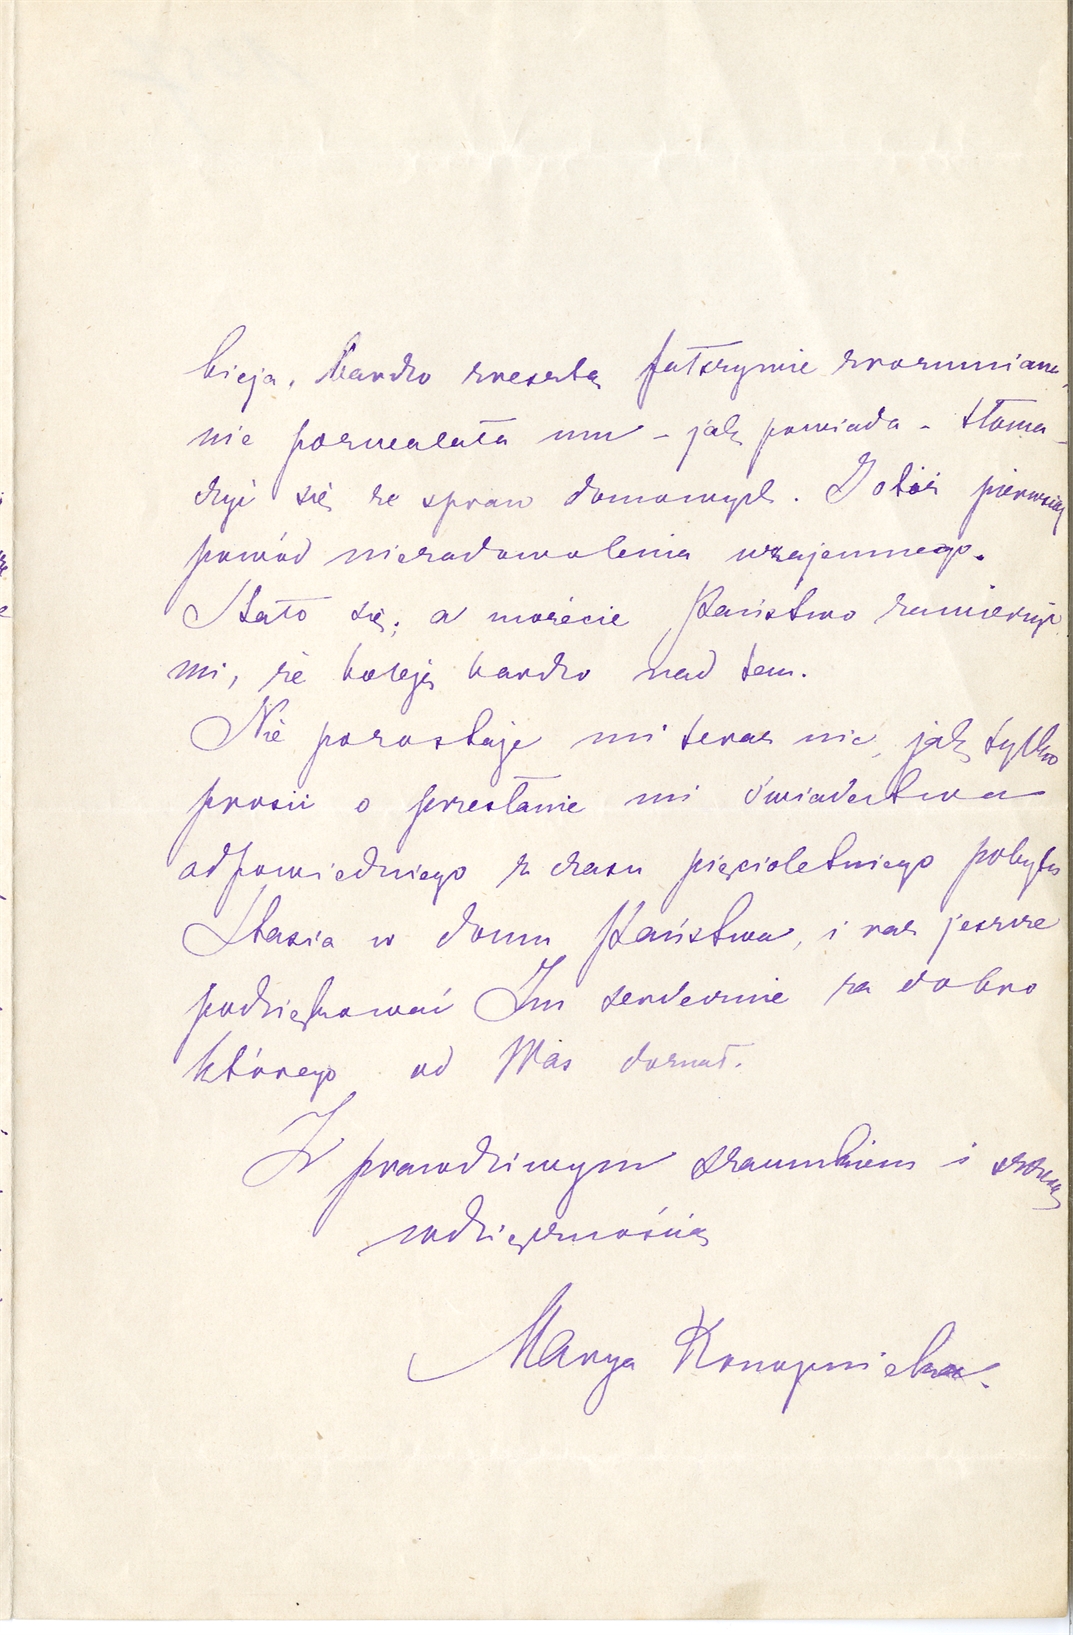 bicja, bardzo zresztą fałszywie zrozumiana,
nie pozwalała mu – jak powiada – tłoma-
czyć się ze spraw domowych. I otóż pierwszy
powód niezadowolenia wzajemnego.
Stało się; a możecie Państwo zawierzyć
mi, że boleję bardzo nad tem.
Nie pozostaje mi teraz nic, jak tylko
prosić o przesłanie mi świadectwa
odpowiedniego z czasu pięcioletniego pobytu
Stasia w domu Państwa, i raz jeszcze
podziękować Im serdecznie za dobro
którego od Was doznał.
Z prawdziwym szacunkiem i szczerą
wdzięcznością
Marya Konopnicka.